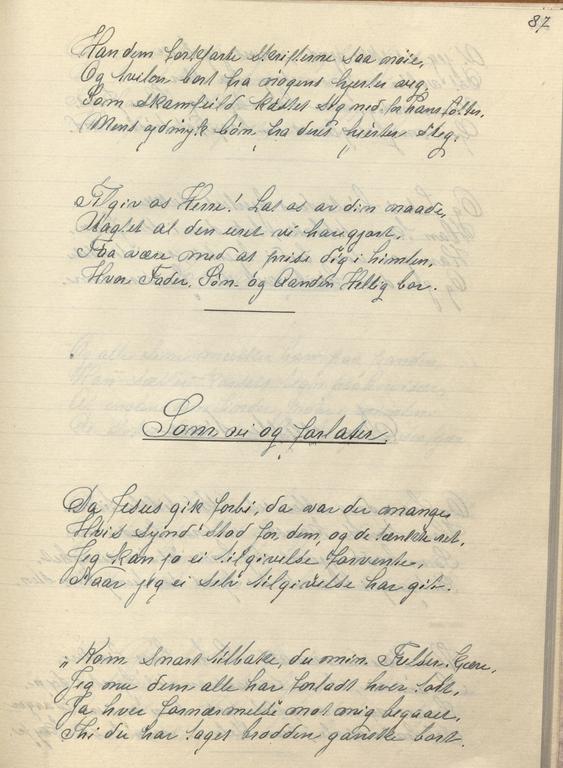 87
Han dem forklarte skrifterne saa nøie,
Og tvilen bort fra nogens hjerter veg,
Som skamfuld kastet sig ned for hans føtter,
Mens ydmyk bøn fra deres hjerter steg.
Tilgiv os Herre! Lat os av din naade,
Uagtet al den uret vi have gjort,
Faa være med at prise dig i himlen,
Hvor Fader, Søn og Aanden Hellig bor.
Som vi og forlater.
Da Jesus gik forbi, da var der mange,
Hvis synd stod for dem, og de tænkte ret,
Jeg kan jo ei tilgivelse forvente,
Naar jeg ei selv tilgivelse har git.
"Kom snart tilbake, du min Frelser kjære,
Jeg nu dem alle har forladt hver
Ja hver fornærmelse mot mig begaaet,
Thi du har taget brodden ganske bort.